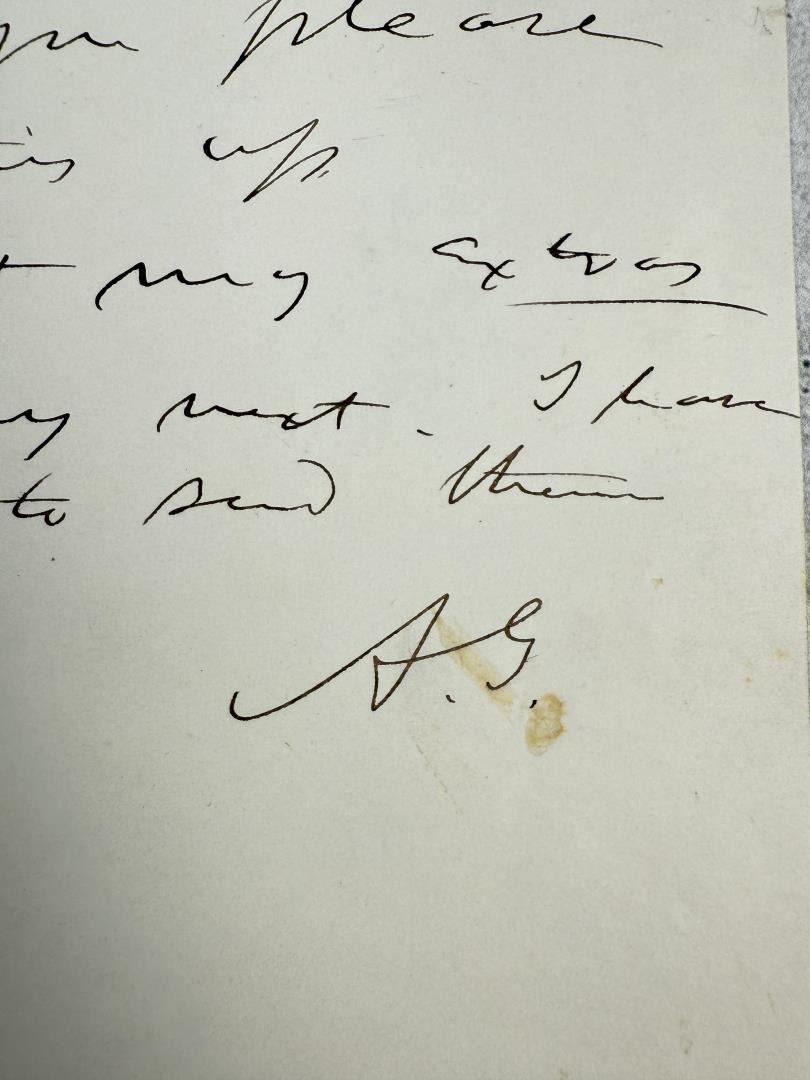 you please
is up
my extras
my next. I have
to send them
A.G.